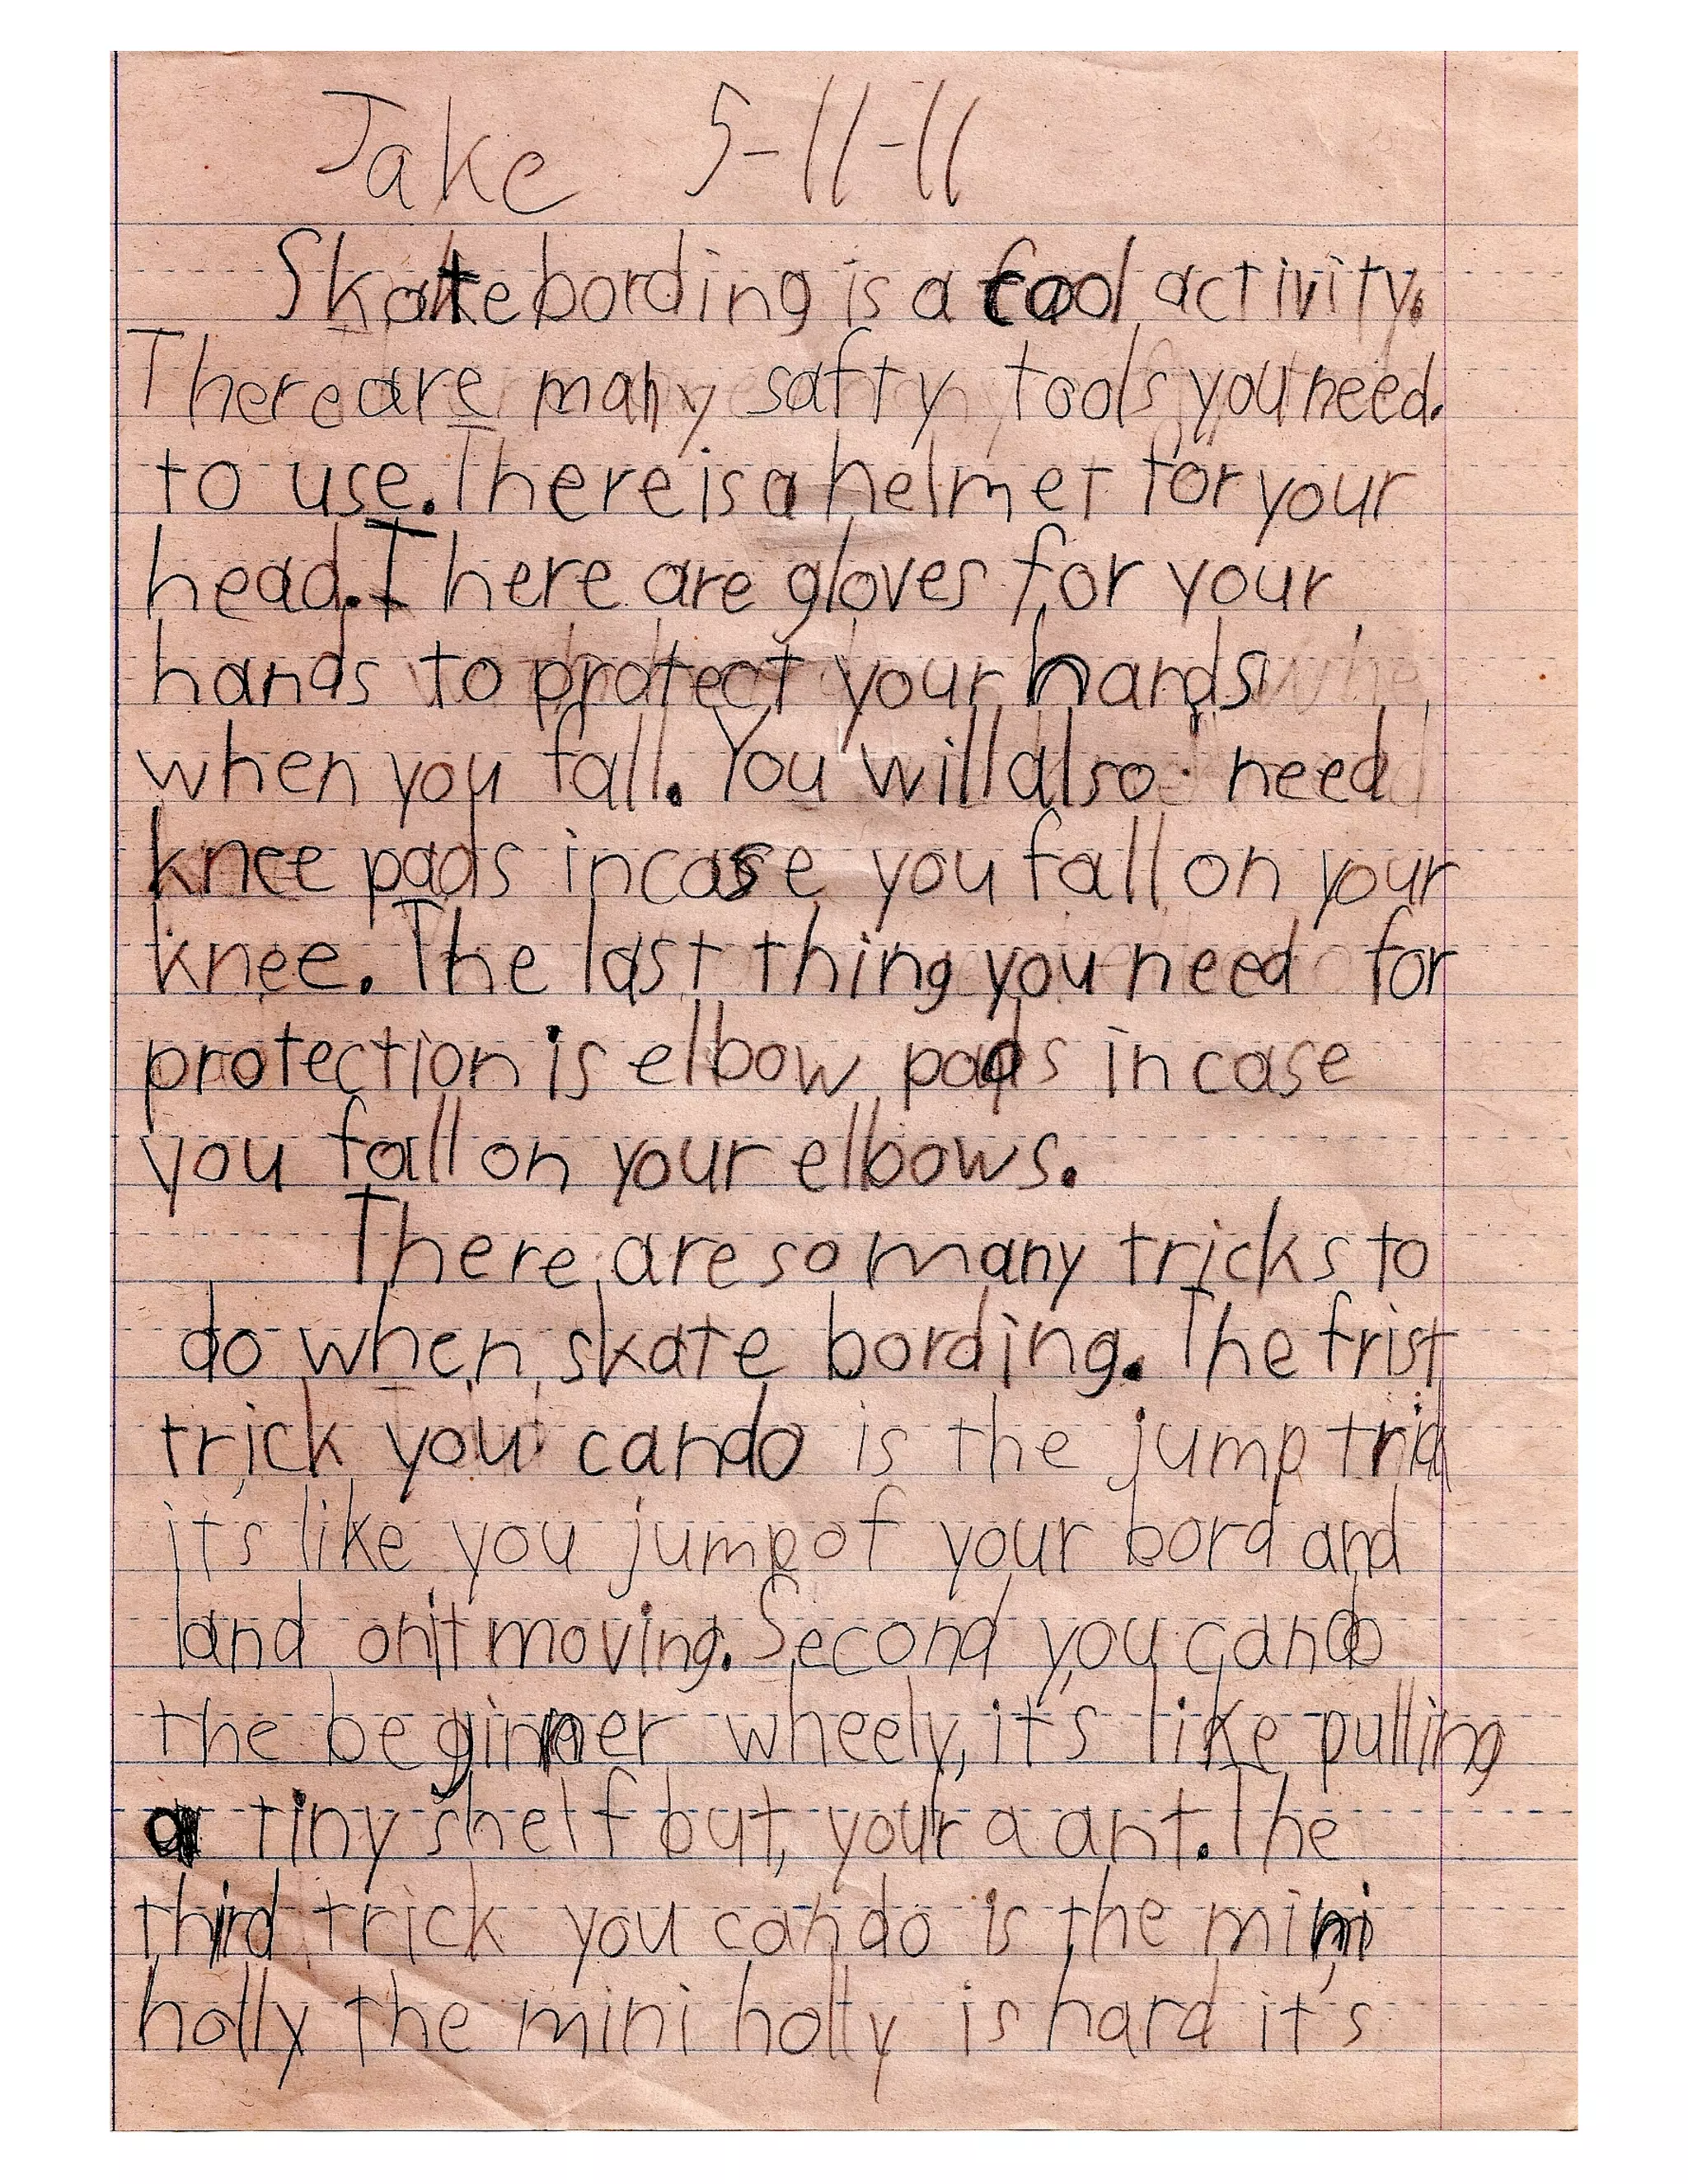 Jake 5-11-11
Skate bording is a cool activity.
There are many safty tools you need.
to use. There is a helmet for your
head. There are gloves for your
hands to protect your hands
when you fall. You will also need
knee pads incase you fall on your
knee. The last thing you need for
protection is elbow pads in case
you fall on your elbows.
There are so many tricks to
do when skate bording. The frist
trick you can do is the jump trick
it's like you jump of your bord and
land on it moving. Second you can do
the beginner wheely, it's like pulling
a tiny shelf but, your a ant. The
third trick you can do is the mini
holly the mini holly is hard it's